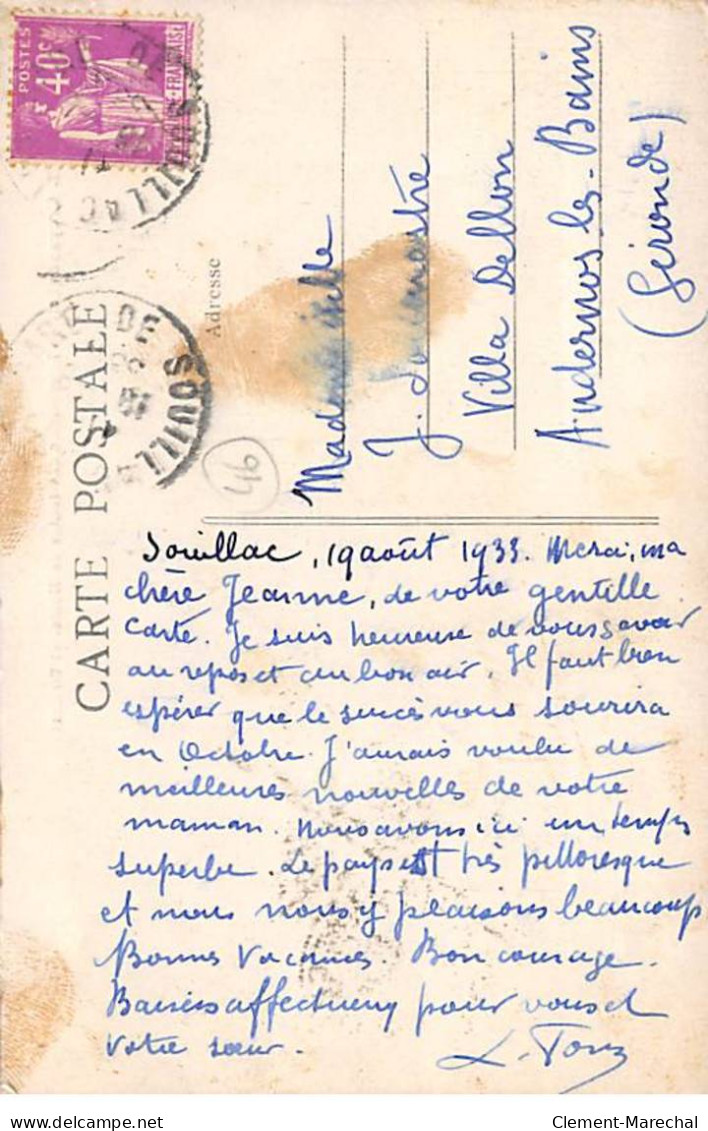 POSTES
40c
FRANÇAISE
GARE DE
SOUILLAC
GARE DE
SOUILLAC
CARTE POSTALE
Adresse
Mademoiselle
J.
Villa Dellon
Andernos les Bains
(Gironde)
46
Souillac, 19 août 1933. Merci, ma
chère Jeanne, de votre gentille
carte. Je suis heureuse de vous savoir
au repos et au bon air. Il faut bien
espérer que le succès vous sourira
en Octobre. J'aurais voulu de
meilleures nouvelles de votre
maman. Nous avons ici un temps
superbe. Le pays est très pittoresque
et nous nous y plaisons beaucoup
Bonnes Vacances. Bon courage.
Baisers affectueux pour vous et
votre sœur.
delcampe.net
Clement-Marechal